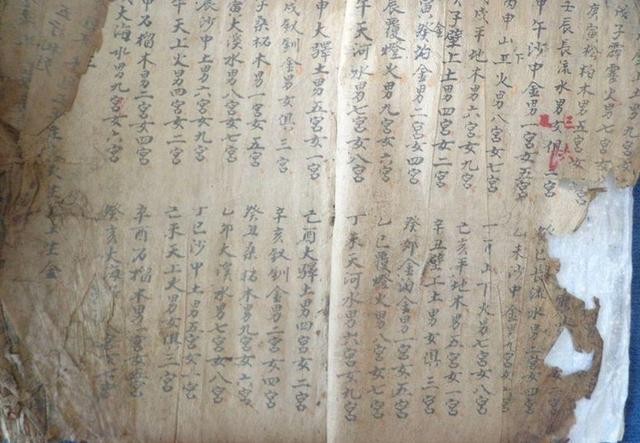 戊子霹靂火男七宮女
庚寅松柏木男五宮女
壬辰長流水男女俱三宮
長流水男二宮女四宮
甲午沙中金男一宮女五宮
乙未沙中金男九宮女
丙申山下火男八宮女七宮
山下火男七宮女八宮
戌平地木男六宮女九宮
己亥平地木男五宮女一宮
子壁上土男四宮女二宮
辛丑壁上土男女俱三宮
寅金泊金男二宮女四宮
癸卯金泊金男一宮女五宮
辰覆燈火男九宮女六宮
乙巳覆燈火男八宮女七宮
午天河水男七宮女八宮
丁未天河水男六宮女九宮
申大驛土男五宮女一宮
己酉大驛土男四宮女二宮
戌釵釧金男女俱三宮
辛亥釵釧金男二宮女四宮
子桑柘木男一宮女五宮
癸丑桑柘木男九宮女六宮
寅大溪水男八宮女七宮
乙卯大溪水男七宮女八宮
辰沙中土男六宮女九宮
丁巳沙中土男五宮女一宮
午天上火男四宮女二宮
己未天上火男女俱三宮
申石榴木男二宮女四宮
辛酉石榴木男一宮女五宮
大海水男九宮女六宮
癸亥大海水